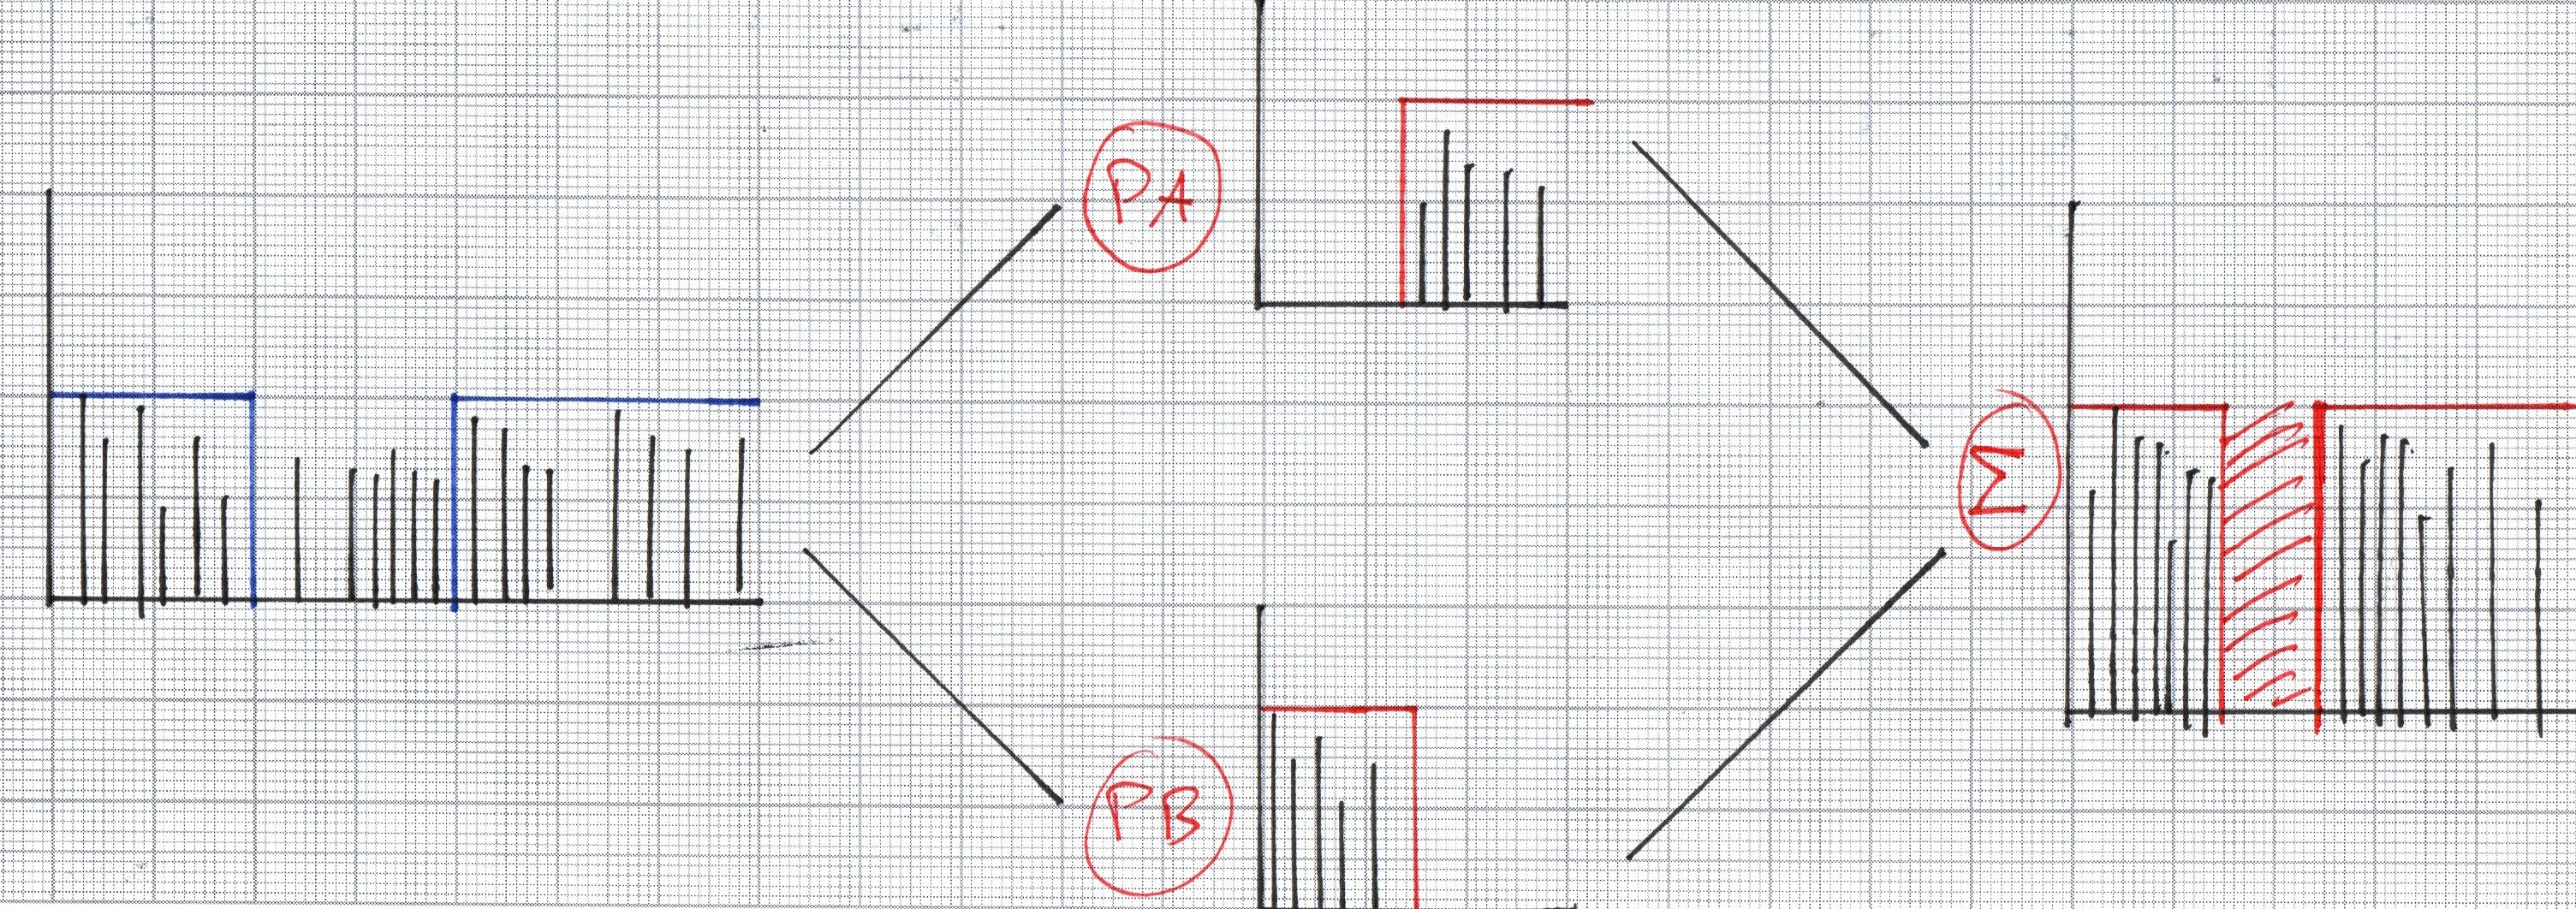 PA
Σ
PB